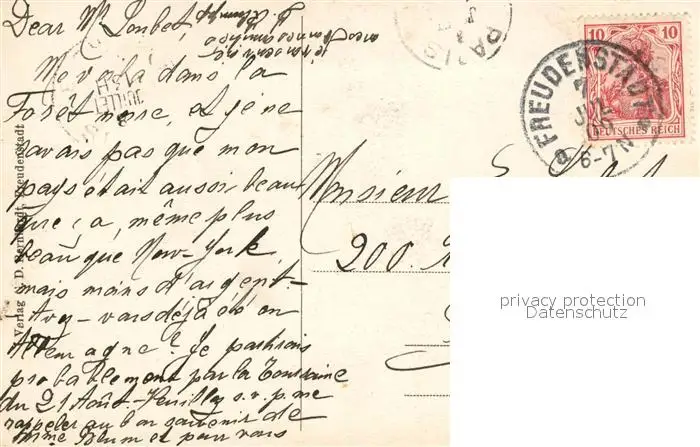 Dear M. Loubet,
Me voilà dans la
Forêt noire, et je ne
savais pas que mon
pays était aussi beau
que ça, même plus
beau que New-York,
mais moins d'argent-
Avez-vous déjà été en
Allemagne? Je partirais
probablement par la Touraine
du 21 Août-Veuillez s.v.p. me
rappeler au bon souvenir de
Mme Blum et pour vous
Verlag v. D. Bernstadt, Freudenstadt.
PARIS
JUILLET
10 10
DEUTSCHES REICH
FREUDENSTADT
7
JUL
6-7N
Monsieur
200.
privacy protection
Datenschutz